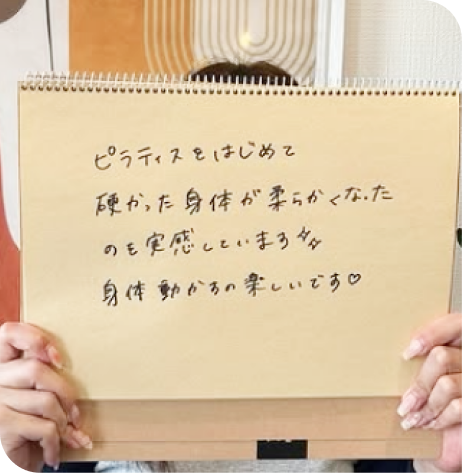 ピラティスをはじめて
硬かった身体が柔らかくなった
のを実感しています⚡⚡
身体動かすの楽しいです♡